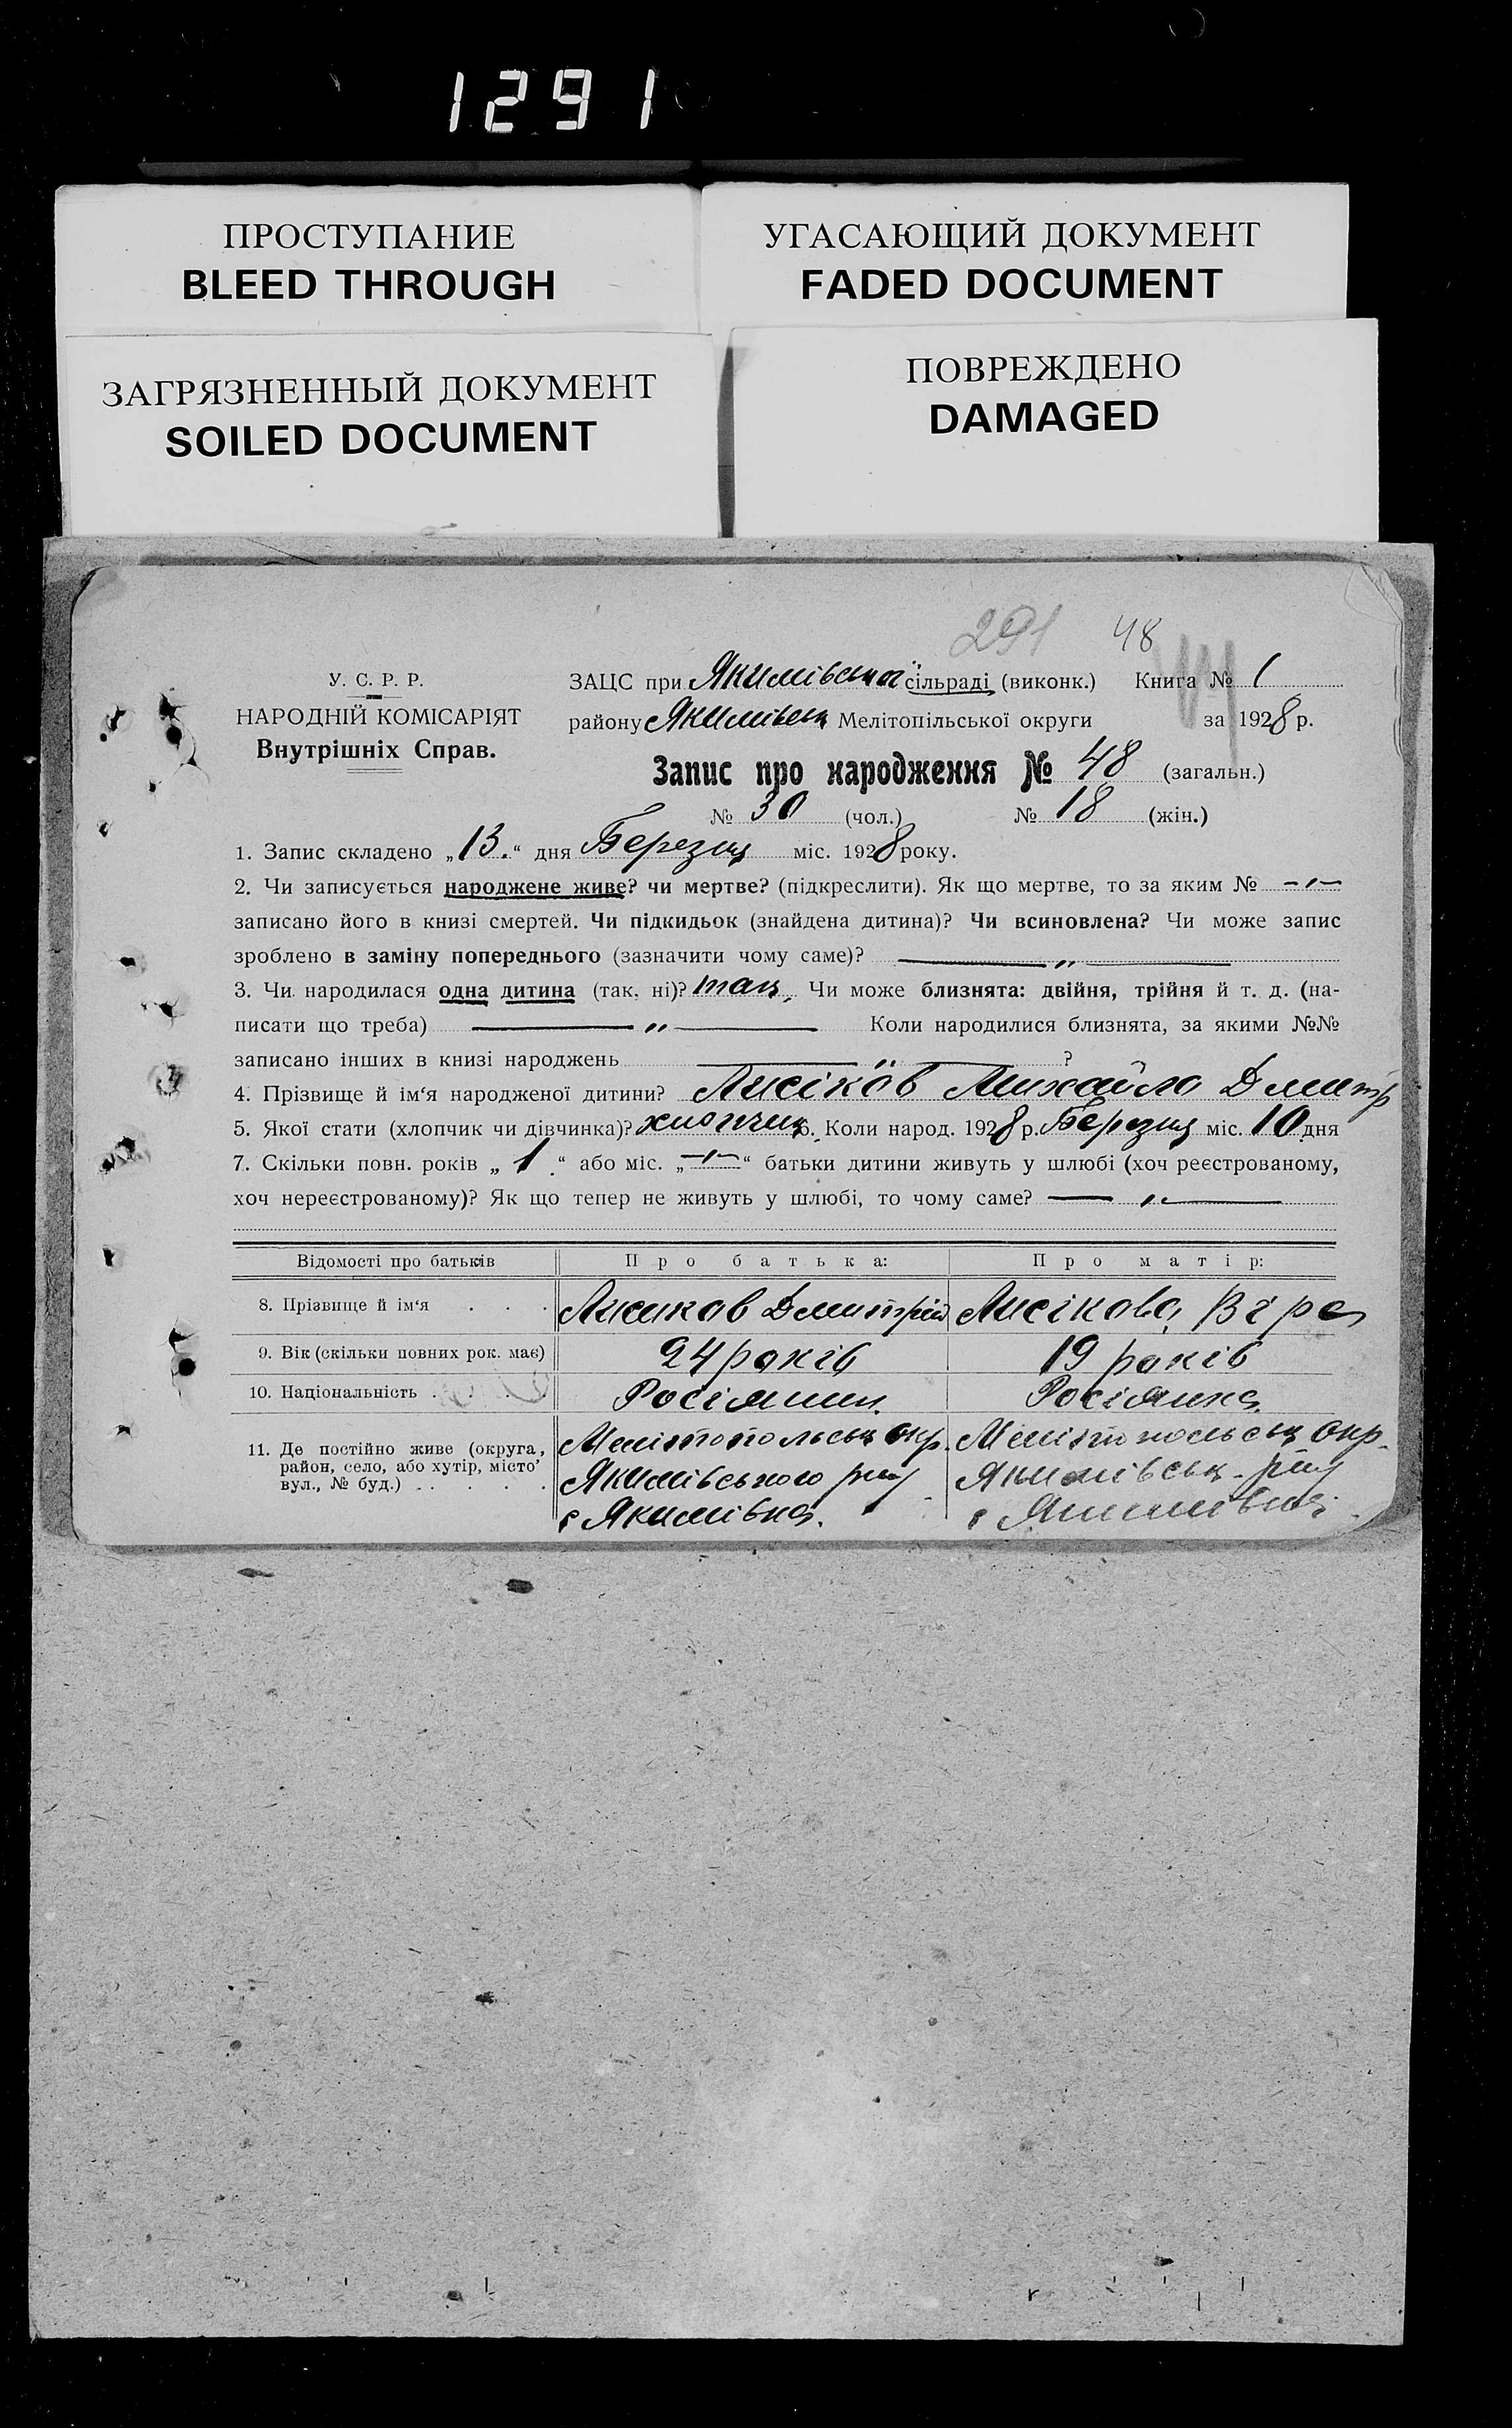 1291
ПРОСТУПАНИЕ
BLEED THROUGH
УГАСАЮЩИЙ ДОКУМЕНТ
FADED DOCUMENT
ЗАГРЯЗНЕННЫЙ ДОКУМЕНТ
SOILED DOCUMENT
ПОВРЕЖДЕНО
DAMAGED
291 48
У. С. Р. Р.
НАРОДНІЙ КОМІСАРІЯТ
Внутрішніх Справ.
ЗАЦС при Якимівській сільраді (виконк.) Книга № 1
району Якимівськ Мелітопільської округи за 1928 р.
Запис про народження № 48 (загальн.)
№ 30 (чол.) № 18 (жін.)
1. Запис складено „13.“ дня Березня міс. 1928 року.
2. Чи записується народжене живе? чи мертве? (підкреслити). Як що мертве, то за яким № —〃—
записано його в книзі смертей. Чи підкидьок (знайдена дитина)? Чи всиновлена? Чи може запис
зроблено в заміну попереднього (зазначити чому саме)? — 〃 —
3. Чи народилася одна дитина (так, ні)? так, Чи може близнята: двійня, трійня й т. д. (на-
писати що треба) — 〃 — Коли народилися близнята, за якими №№
записано інших в книзі народжень — 〃 — ?
4. Прізвище й ім‘я народженої дитини? Лисіков Михайло Дмитр
5. Якої стати (хлопчик чи дівчинка)? хлопчик 6. Коли народ. 1928 р. Березня міс. 10 дня
7. Скільки повн. років „ 1 “ або міс. „—〃—“ батьки дитини живуть у шлюбі (хоч реєстрованому,
хоч нереєстрованому)? Як що тепер не живуть у шлюбі, то чому саме? — 〃 —
Відомості про батьків Про батька: Про матір:
8. Прізвище й ім‘я . . . Лисиков Дмитрій Лисікова Віра
9. Вік (скільки повних рок. має) 24 років 19 років
10. Національність . . Росіянин. Росіянка.
11. Де постійно живе (округа, район, село, або хутір, місто’ вул., № буд.) . . . . .
Мелітопольськ окр. Мелітопольськ окр.
Якимівського рну Якимівськ. рну
с Якимівка. с Якимівка.